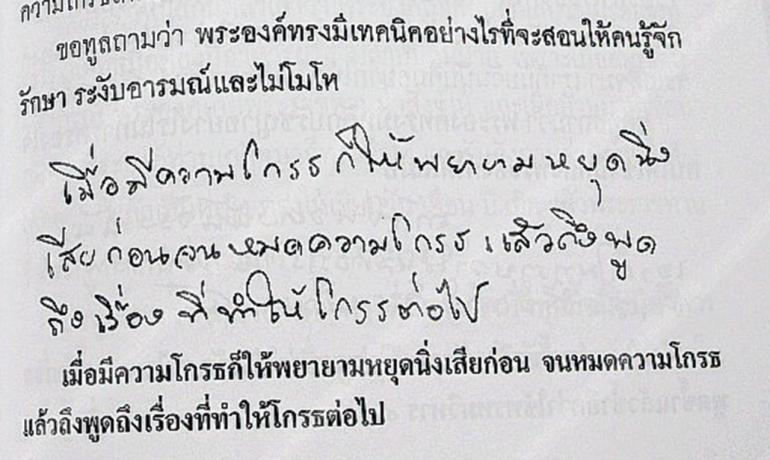 ขอทูลถามว่า พระองค์ทรงมีเทคนิคอย่างไรที่จะสอนให้คนรู้จัก
รักษา ระงับอารมณ์และไม่โมโห
เมื่อมีความโกรธก็ให้พยายามหยุดนิ่ง
เสียก่อนจนหมดความโกรธ แล้วถึงพูด
ถึงเรื่องที่ทำให้โกรธต่อไป
เมื่อมีความโกรธก็ให้พยายามหยุดนิ่งเสียก่อน จนหมดความโกรธ
แล้วถึงพูดถึงเรื่องที่ทำให้โกรธต่อไป